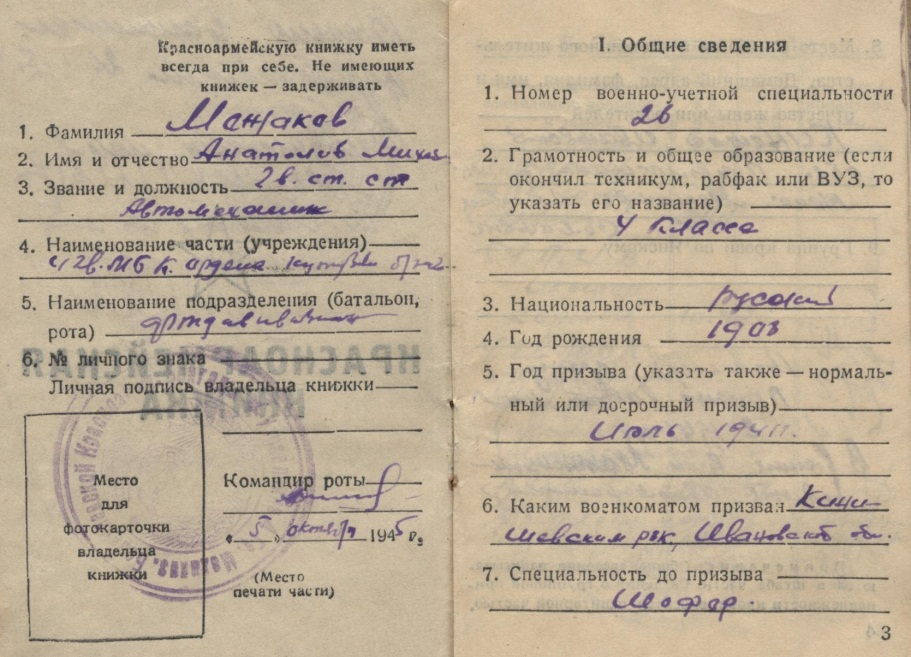 Красноармейскую книжку иметь
всегда при себе. Не имеющих
книжек — задерживать
1. Фамилия Мажаков
2. Имя и отчество Анатолий Миха
3. Звание и должность Гв. ст. с-т
Автомеханик
4. Наименование части (учреждения)
ордена Кутузова
5. Наименование подразделения (батальон,
рота)
6. № личного знака
Личная подпись владельца книжки
Место
для
фотокарточки
владельца
книжки
Командир роты
„5„ октября 1945 г.
(Место
печати части)
I. Общие сведения
1. Номер военно-учетной специальности
26
2. Грамотность и общее образование (если
окончил техникум, рабфак или ВУЗ, то
указать его название)
4 класса
3. Национальность русский
4. Год рождения 1903
5. Год призыва (указать также — нормаль-
ный или досрочный призыв)
Июль 1941 г.
6. Каким военкоматом призван Кине-
шевским рвк, Ивановской обл.
7. Специальность до призыва
Шофер.
3